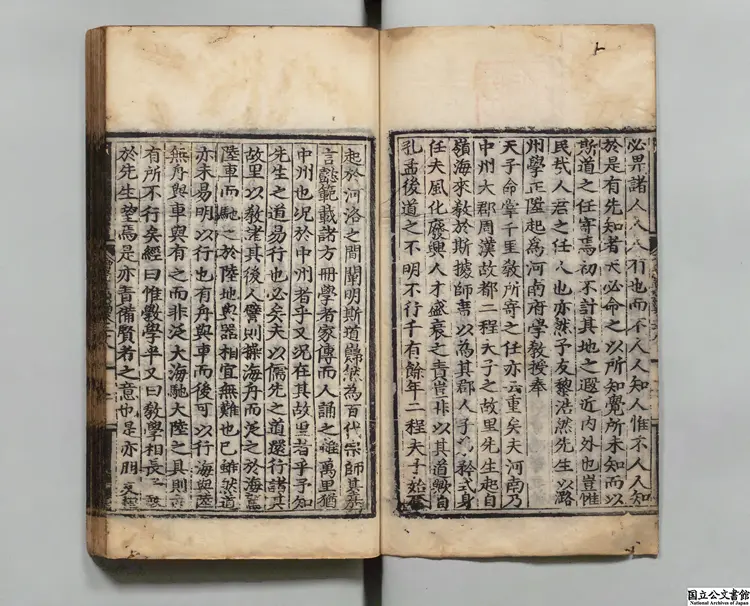 必畀諸人人人行也而不人人知人惟不人人知
於是有先知者天必命之以所知覺所未知而以
斯道之任寄焉初不計其地之遐近内外也豈惟
民哉人君之任人也亦然予友黎浩然先生以潞
州學正陞起爲河南府學教授奉
天子命掌千里教所寄之任亦云重矣夫河南乃
中州大郡周漢故都二程夫子之故里先生起自
嶺海來教於斯據師席以為其郡人子矜式身
任夫風化廢興人才盛衰之責豈非以其道歟自
孔孟後道之不明不行千有餘年二程夫子始
起於河洛之間闡明斯道巋然為百代宗師其
言懿範載諸方冊學者家傳而人誦之雖萬里猶
中州也况於中州者乎又况在其故里者乎予知
先生之道易行也必矣夫以儒先之道還行諸其
故里以教渚其後人譬則操海舟而泛之於海
陸車而馳之於陸地與器相宜無難也已雖然道
亦未易明以行也有舟與車而後可以行海與陸
無舟與車與有之而非泛大海馳大陸之具則
有所不行矣經曰惟斆學半又曰教學相長
於先生望焉是亦責備賢者之意也是亦朋友
国立公文書館
National Archives of Japan